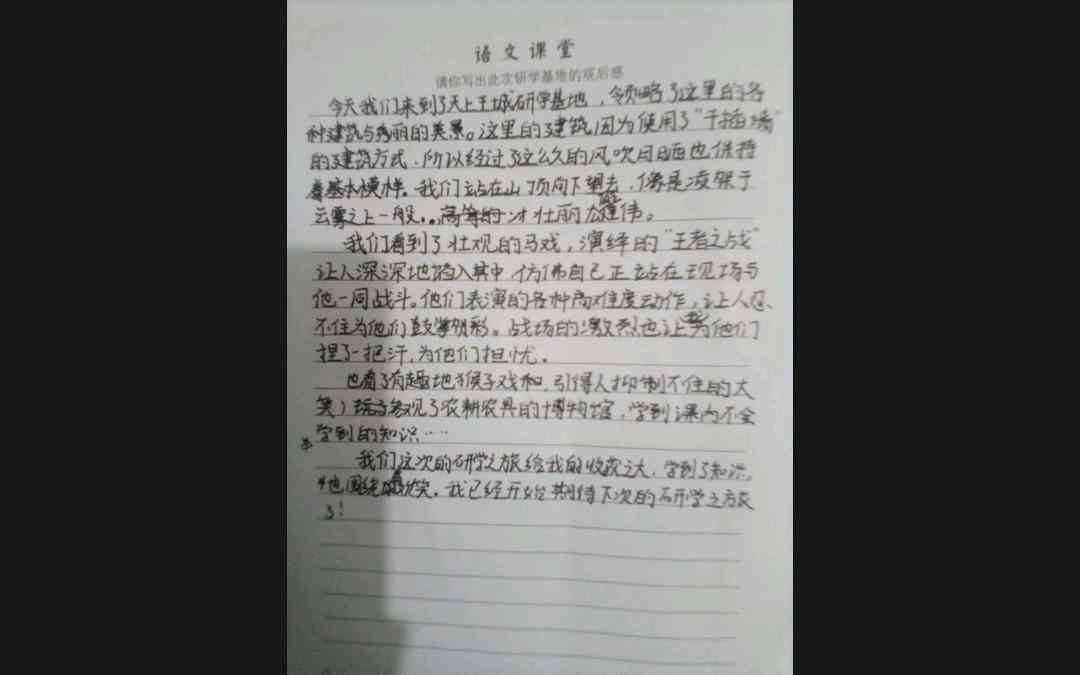 语文课堂
请你写出此次研学基地的观后感
今天我们来到了天上王城研学基地，领略了这里的各
种建筑与秀丽的美景。这里的建筑因为使用了“干插墙”
的建筑方式，所以经过了这么久的风吹日晒也保持
着基本模样。我们站在山顶向下望去，像是凌架于
云雾之上一般。壮丽雄伟。
我们看到了壮观的马戏，演绎的“王者之战”
让人深深地陷入其中，仿佛自己正站在现场与
他一同战斗。他们表演的各种高难度动作，让人忍
不住为他们鼓掌喝彩。战场的激烈也让我为他们
捏了一把汗，为他们担忧。
也看了有趣地猴子戏和，引得人抑制不住的大
笑，参观了农耕农具的博物馆，学到课内不会
学到的知识……
我们这次的研学之旅给我的收获之大，学到了知识，
也围绕欢笑。我已经开始期待下次的研学之旅
了！